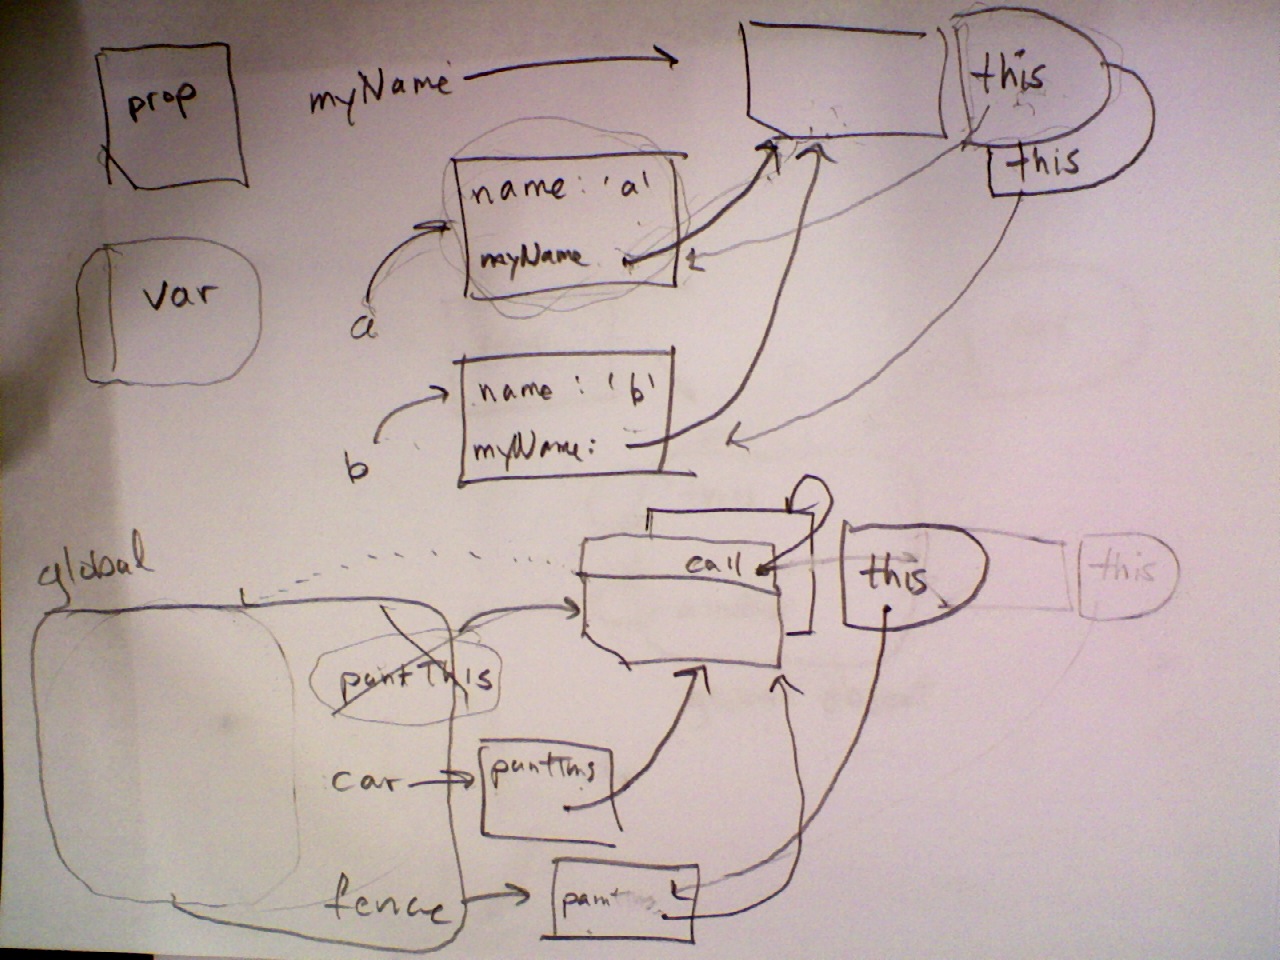 prop
myName
this
this
name: 'a'
myName
var
a
name: 'b'
myName:
b
global
call
this
this
paintThis
car
fence